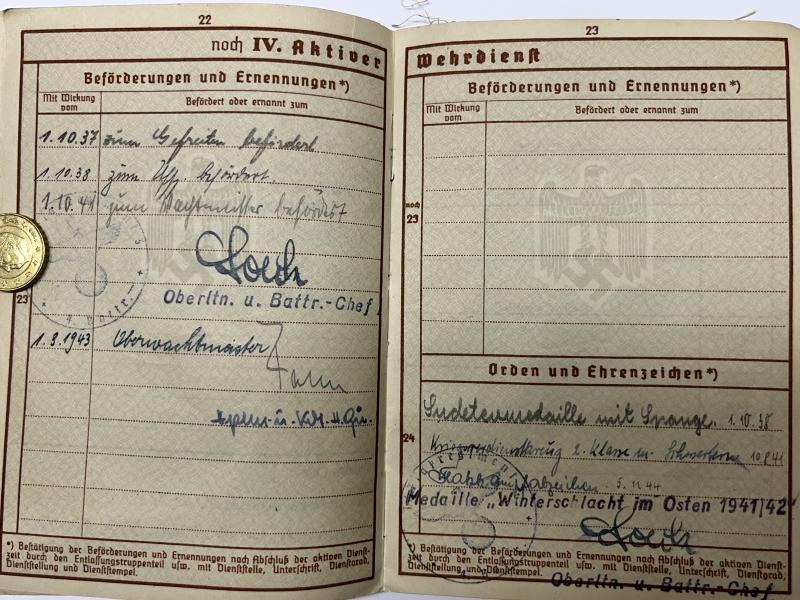 22
noch IV. Aktiver
Beförderungen und Ernennungen*)
Mit Wirkung vom
Befördert oder ernannt zum
1.10.37 zum Gefreiten befördert
1.10.38 zum Uffz. befördert.
1.10.41 zum Wachtmeister befördert
Oberltn. u. Battr.-Chef
23
1.3.1943 Oberwachtmeister
*) Bestätigung der Beförderungen und Ernennungen nach Abschluß der aktiven Dienst-
zeit durch den Entlassungstruppenteil usw. mit Dienststelle, Unterschrift, Dienstgrad,
Dienststellung und Dienststempel.
23
Wehrdienst
Beförderungen und Ernennungen*)
Mit Wirkung vom
Befördert oder ernannt zum
noch
23
Orden und Ehrenzeichen*)
Sudetenmedaille mit Spange. 1.10.38
24
Kriegsverdienstkreuz 2. Klasse m. Schwertern
Medaille „Winterschlacht im Osten 1941/42"
*) Bestätigung der Beförderungen und Ernennungen nach Abschluß der aktiven Dienst-
zeit durch den Entlassungstruppenteil usw. mit Dienststelle, Unterschrift, Dienstgrad,
Dienststellung und Dienststempel.
Oberltn. u. Battr.-Chef